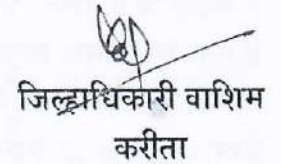 जिल्हाधिकारी वाशिम
करीता